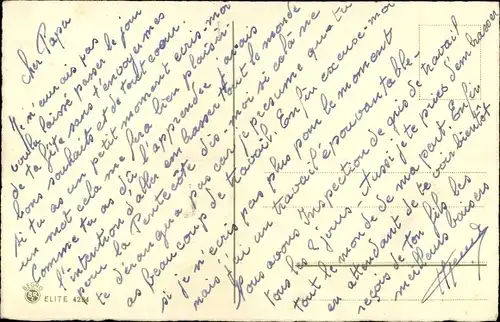 cher Papa
Je n'aurais pas
voulu laissé passer le jour
de ta fête sans t'envoyer mes
bons souhaits et de tout cœur.
Si tu as un petit moment ecris moi
un mot cela me fera bien plaisir
Comme tu as dû l'apprendre j'avais
l'intention d'aller embrasser tout le monde
pour la Pentecôte dis-moi si celà ne
te dérangera pas car je présume que tu
as beaucoup de travail. Enfin excuse moi
si je n'ecris pas plus pour le moment
mais j'ai un travail épouvantable-
Nous avons Inspection de gus de travail
tous les 2 jours - Aussi je te prie d'embrasser
tout le monde de ma part. Enfin
en attendant de te voir bientôt
reçois de ton fils les
meilleurs baisers
ELITE 4234